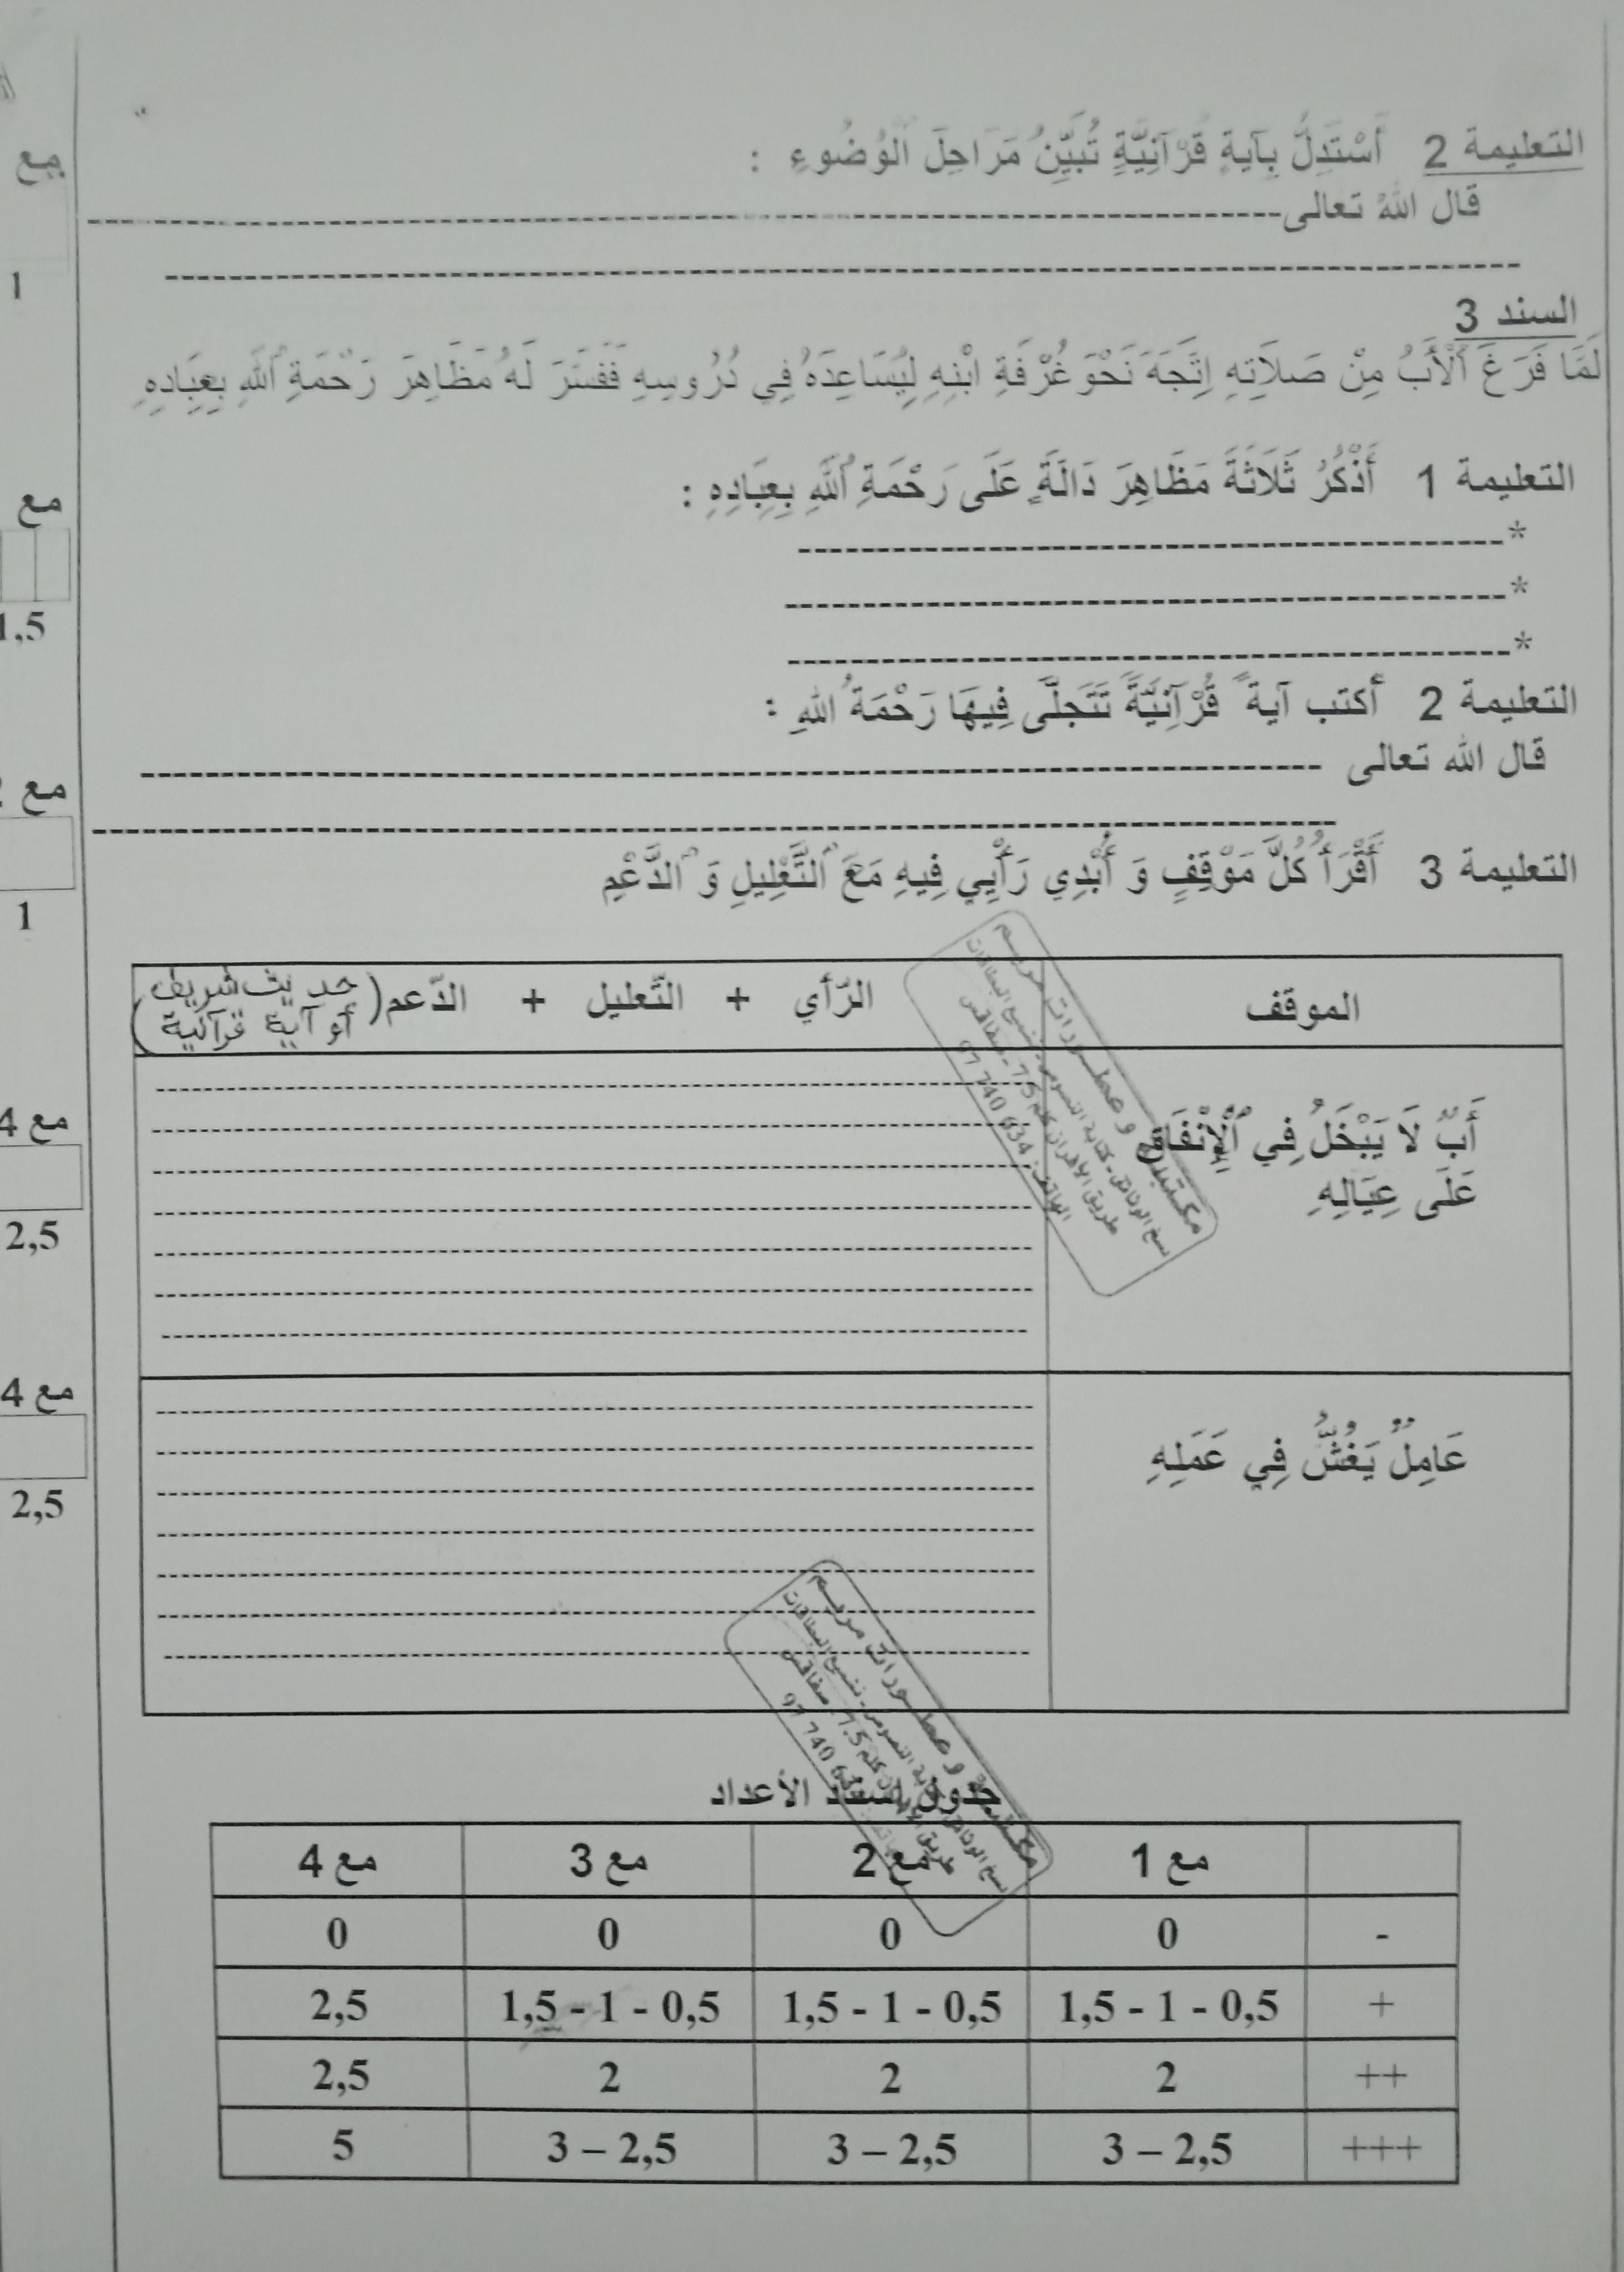 التعليمة 2 أَسْتَدِلُّ بِآيةٍ قُرْآنِيَّةٍ تُبَيِّنُ مَرَاحِلَ الْوُضُوءِ :
قال اللهُ تعالى
السند 3
لَمَّا فَرَغَ الْأَبُ مِنْ صَلَاتِهِ اِتَّجَهَ نَحْوَ غُرْفَةِ ابْنِهِ لِيُسَاعِدَهُ فِي دُرُوسِهِ فَفَسَّرَ لَهُ مَظَاهِرَ رَحْمَةِ اللهِ بِعِبَادِهِ
التعليمة 1 أَذْكُرُ ثَلَاثَةَ مَظَاهِرَ دَالَةً عَلَى رَحْمَةِ اللهِ بِعِبَادِهِ :
*
*
*
التعليمة 2 أكتب آية قُرْآنِيَّةً تَتَجَلَّى فِيهَا رَحْمَةُ اللهِ :
قال الله تعالى
التعليمة 3 أَقْرَأُ كُلَّ مَوْقِفٍ وَ أُبْدِي رَأْيِي فِيهِ مَعَ التَّعْلِيلِ وَ الدَّعْمِ
الموقف
الرّأي + التّعليل + الدّعم (حديث شريف
أو آية قرآنية)
أَبٌ لَا يَبْخَلُ فِي الْإِنْفَاقِ
عَلَى عِيَالِهِ
عَامِلٌ يَغُشُّ فِي عَمَلِهِ
مكتبة و عطورات مريم
طريق الأفران كلم 7.5 - صفاقس
الهاتف: 97 740 634
جدول إسناد الأعداد
مع 1 مع 2 مع 3 مع 4
- 0 0 0 0
+ 1,5 - 1 - 0,5 1,5 - 1 - 0,5 1,5 - 1 - 0,5 2,5
++ 2 2 2 2,5
+++ 3 – 2,5 3 – 2,5 3 – 2,5 5
مع
1
مع
1,5
مع
1
مع 4
2,5
مع 4
2,5